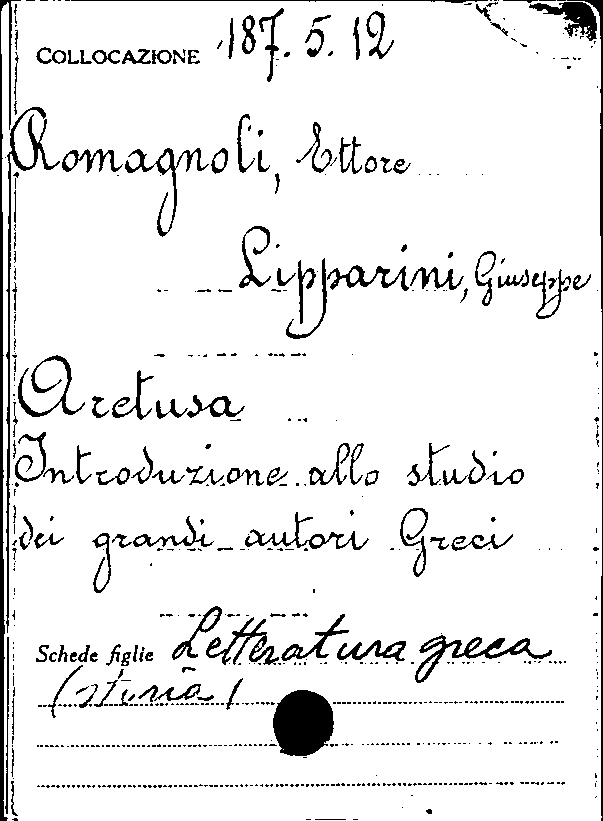 COLLOCAZIONE 187.5.12
Romagnoli, Ettore
Lipparini, Giuseppe
Aretusa
Introduzione allo studio
dei grandi autori Greci
Schede figlie Letteratura greca
(storia)